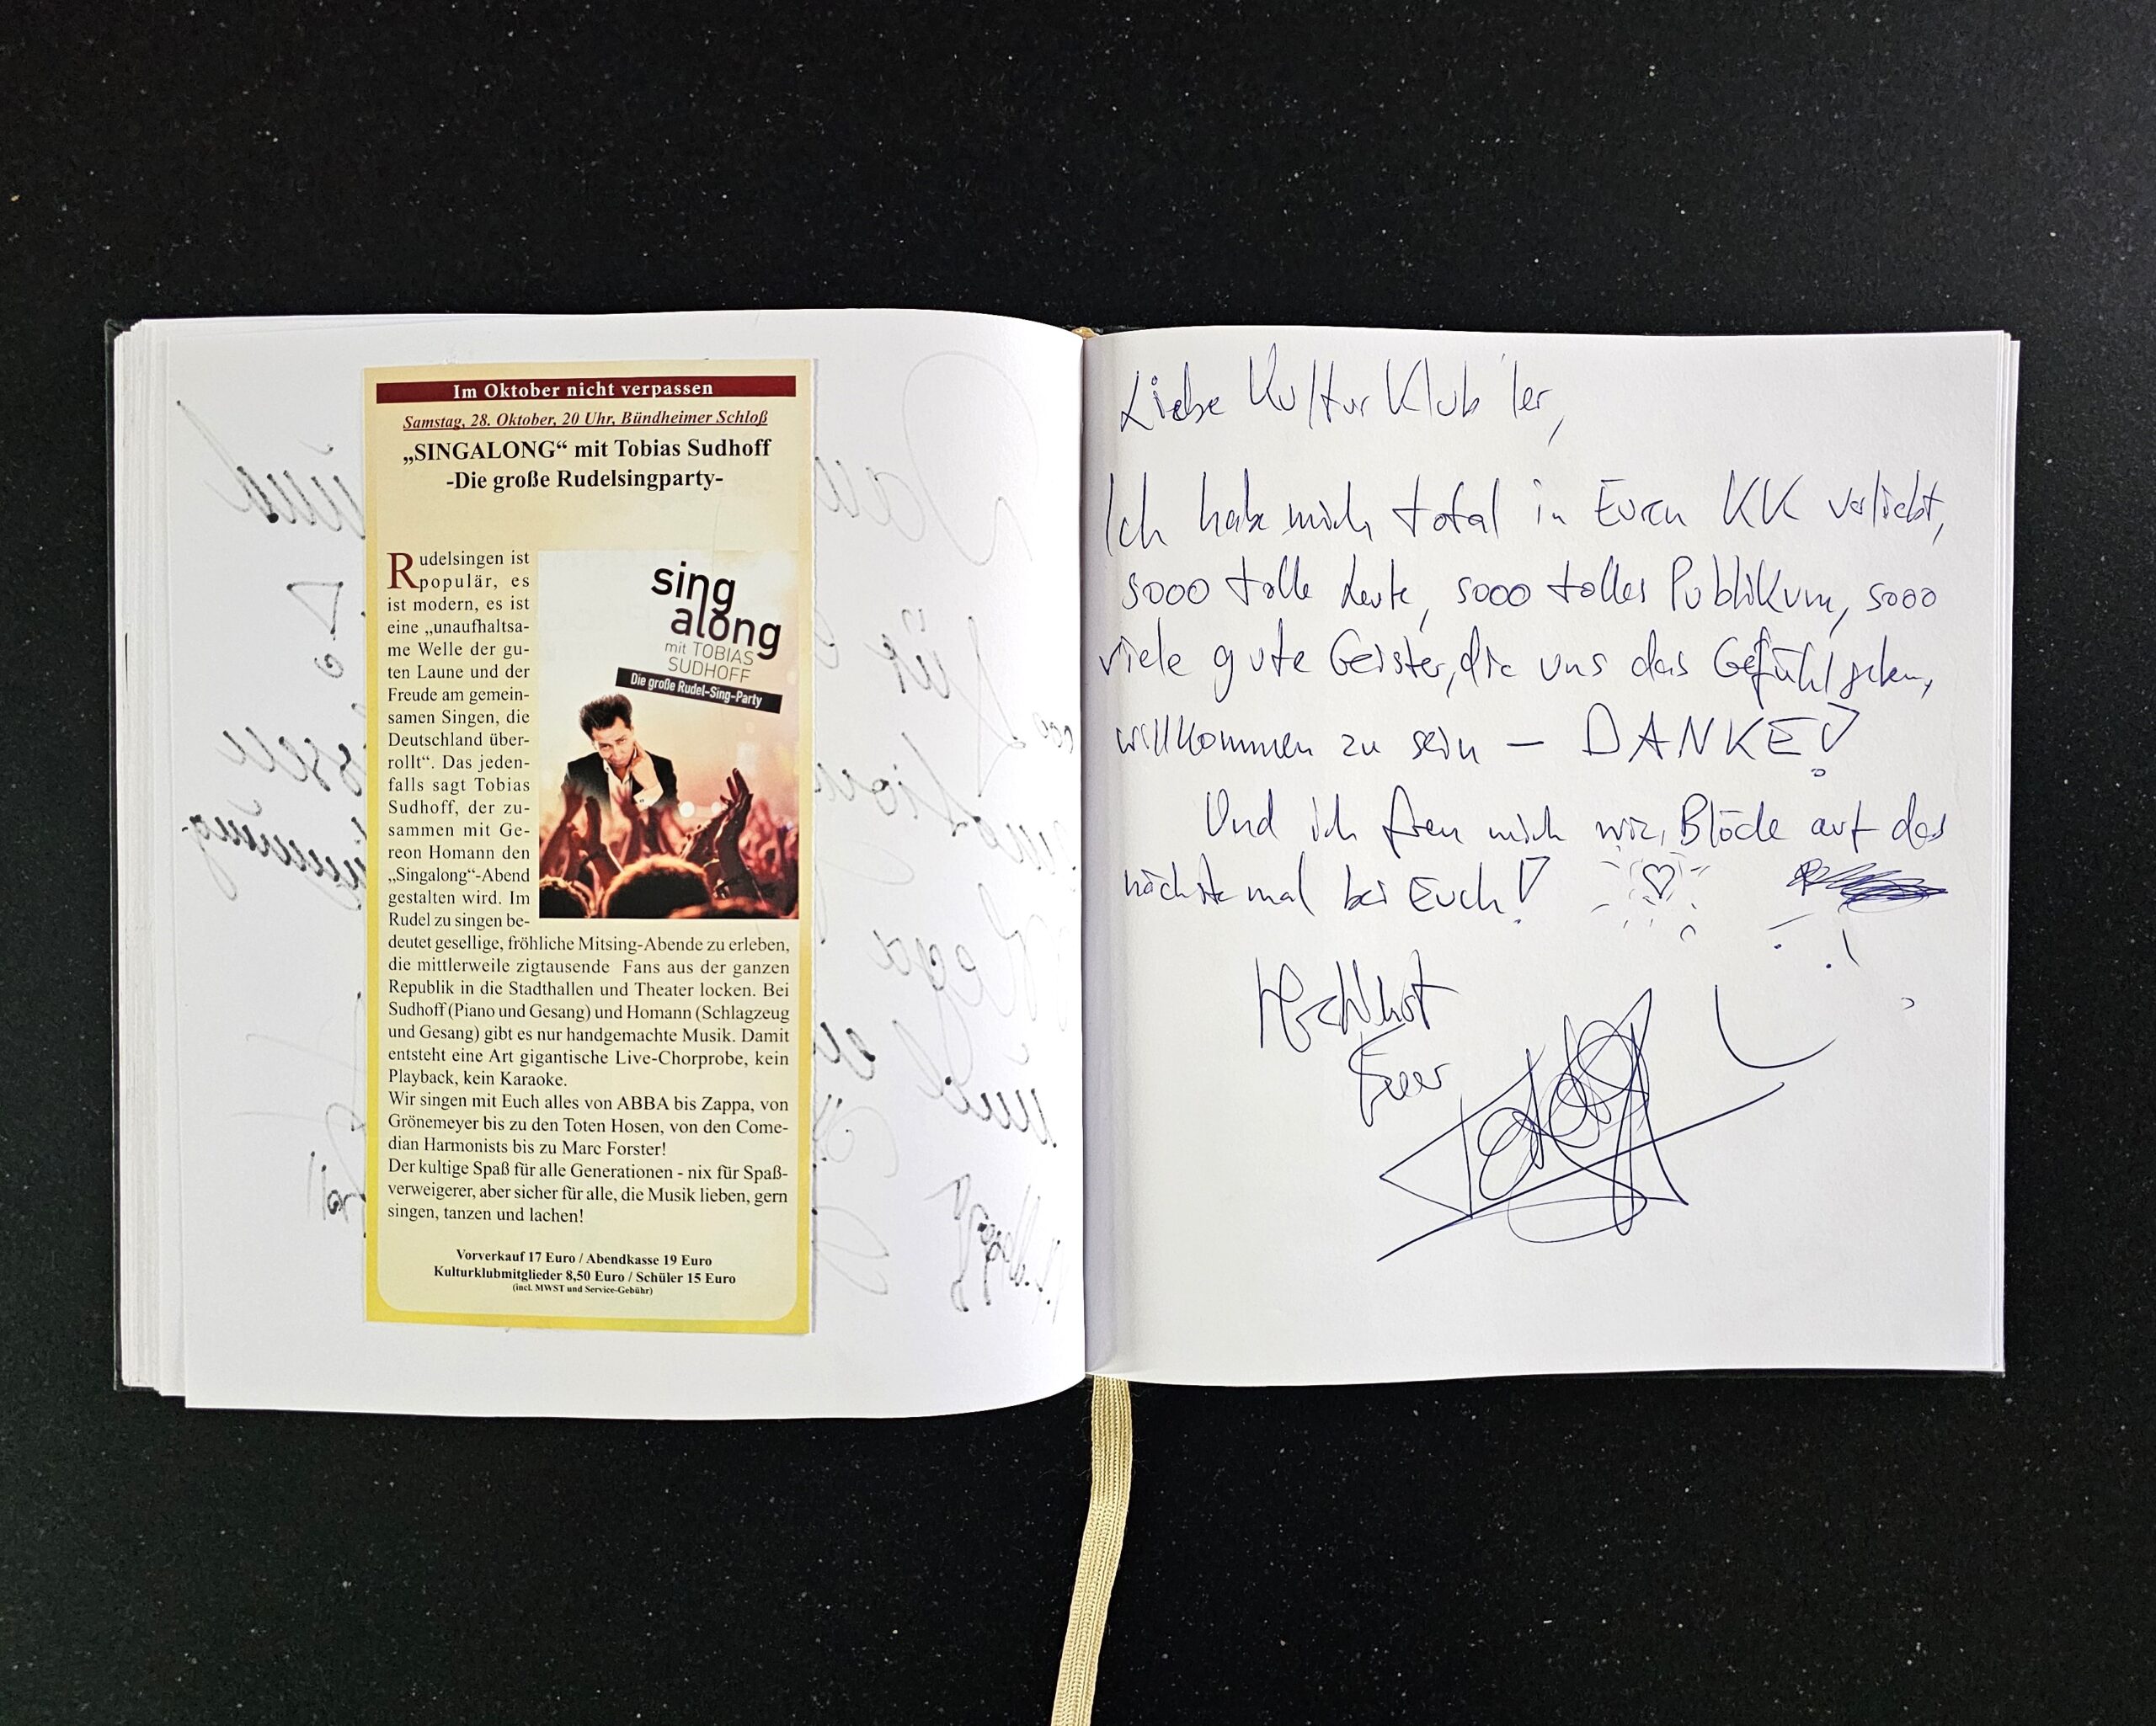 Im Oktober nicht verpassen
Samstag, 28. Oktober, 20 Uhr, Bündheimer Schloß
„SINGALONG“ mit Tobias Sudhoff
-Die große Rudelsingparty-
Rudelsingen ist
populär, es
ist modern, es ist
eine „unaufhaltsa-
me Welle der gu-
ten Laune und der
Freude am gemein-
samen Singen, die
Deutschland über-
rollt“. Das jeden-
falls sagt Tobias
Sudhoff, der zu-
sammen mit Ge-
reon Homann den
„Singalong“-Abend
gestalten wird. Im
Rudel zu singen be-
deutet gesellige, fröhliche Mitsing-Abende zu erleben,
die mittlerweile zigtausende Fans aus der ganzen
Republik in die Stadthallen und Theater locken. Bei
Sudhoff (Piano und Gesang) und Homann (Schlagzeug
und Gesang) gibt es nur handgemachte Musik. Damit
entsteht eine Art gigantische Live-Chorprobe, kein
Playback, kein Karaoke.
Wir singen mit Euch alles von ABBA bis Zappa, von
Grönemeyer bis zu den Toten Hosen, von den Come-
dian Harmonists bis zu Marc Forster!
Der kultige Spaß für alle Generationen - nix für Spaß-
verweigerer, aber sicher für alle, die Musik lieben, gern
singen, tanzen und lachen!
Vorverkauf 17 Euro / Abendkasse 19 Euro
Kulturklubmitglieder 8,50 Euro / Schüler 15 Euro
(incl. MWST und Service-Gebühr)
sing
along
mit TOBIAS
SUDHOFF
Die große Rudel-Sing-Party
Liebe Kultur Klub'ler,
Ich habe mich total in Euren KK verliebt,
sooo tolle Leute, sooo tolles Publikum, sooo
viele gute Geister, die uns das Gefühl geben,
willkommen zu sein – DANKE!
Und ich freu mich wie Blöde auf das
nächste mal bei Euch!
Herzlichst
Euer